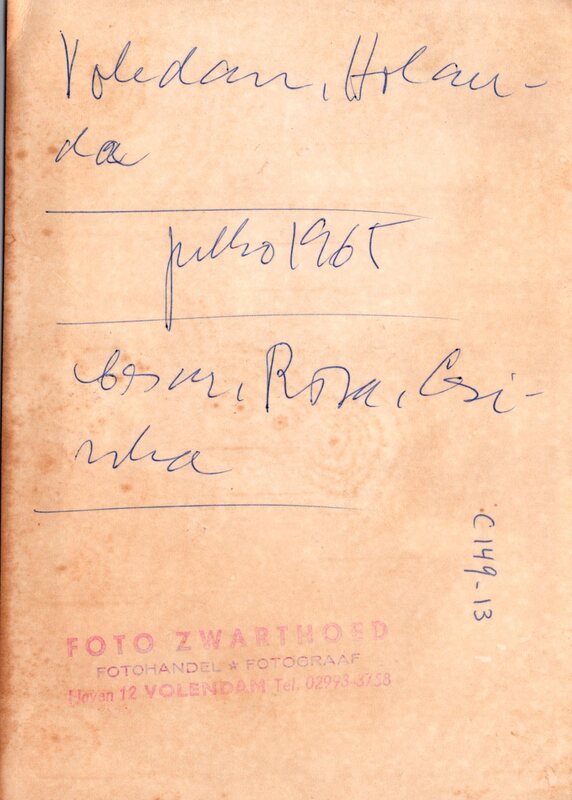 Voledam, Holan-
da
julho 1965
Cesar, Rosa, Cesi-
nha
C149-13
FOTO ZWARTHOED
FOTOHANDEL ★ FOTOGRAAF
Haven 12 VOLENDAM Tel. 02993-3758